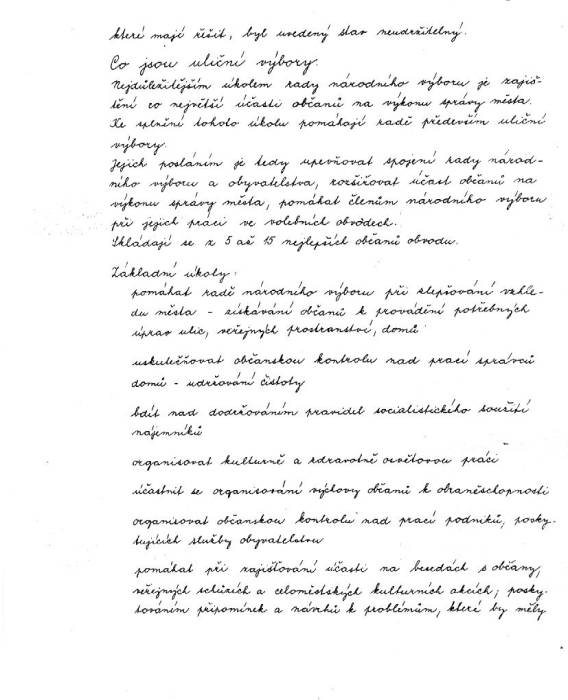 které mají řešit, byl uvedený stav neudržitelný.
Co jsou uliční výbory.
Nejdůležitějším úkolem rady národního výboru je zajiš-
tění co největší účasti občanů na výkonu správy města.
Ke splnění tohoto úkolu pomáhají radě především uliční
výbory.
Jejich posláním je tedy upevňovat spojení rady národ-
ního výboru a obyvatelstva, rozšiřovat účast občanů na
výkonu správy města, pomáhat členům národního výboru
při jejich práci ve volebních obvodech.
Skládají se z 5 až 15 nejlepších občanů obvodu.
Základní úkoly:
pomáhat radě národního výboru při zlepšování vzhle-
du města - získávání občanů k provádění potřebných
úprav ulic, veřejných prostranství, domů
uskutečňovat občanskou kontrolu nad prací správců
domů - udržování čistoty
bdít nad dodržováním pravidel socialistického soužití
nájemníků
organisovat kulturně a zdravotně osvětovou práci
účastnit se organisování výchovy občanů k obraněschopnosti
organisovat občanskou kontrolu nad prací podniků, posky-
tujících služby obyvatelstvu
pomáhat při zajišťování účasti na besedách s občany,
veřejných schůzích a celoměstských kulturních akcích; posky-
továním připomínek a návrhů k problémům, které by měly